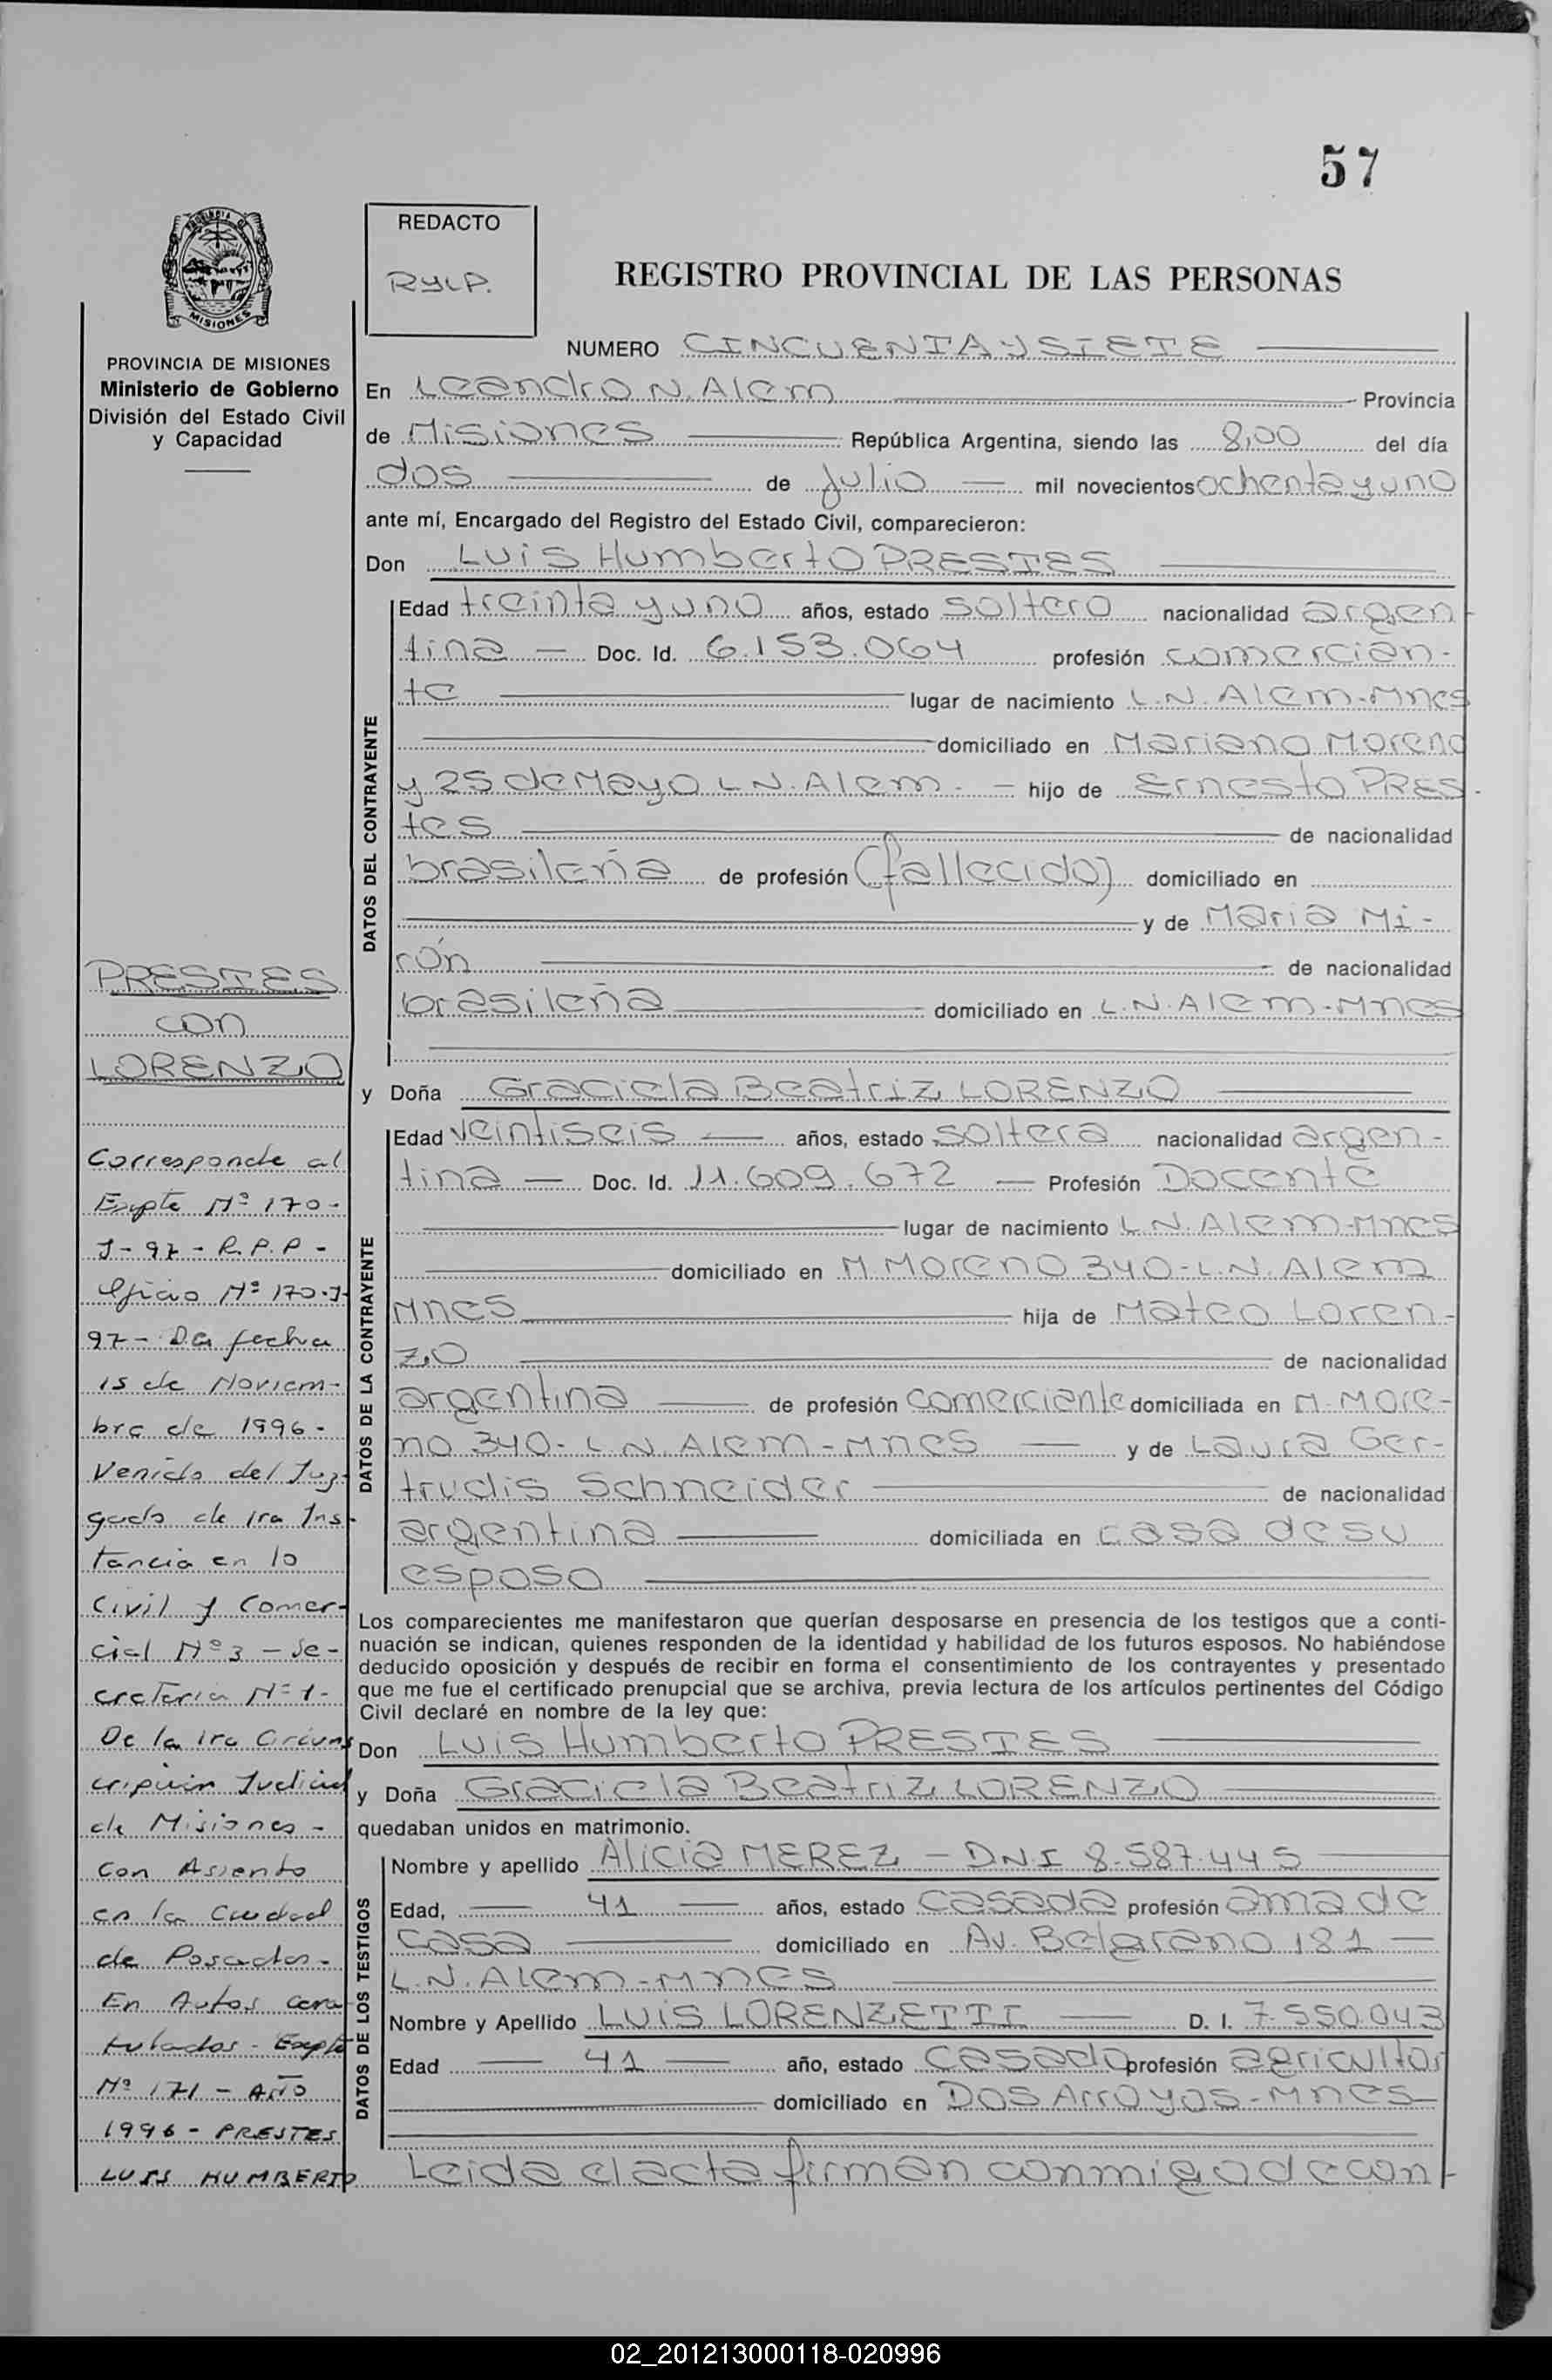 57
REDACTO
RYLP.
REGISTRO PROVINCIAL DE LAS PERSONAS
PROVINCIA DE MISIONES
Ministerio de Gobierno
División del Estado Civil
y Capacidad
NUMERO CINCUENTA Y SIETE
En Leandro N. Alem Provincia
de Misiones República Argentina, siendo las 8,00 del día
dos de julio mil novecientos ochenta y uno
ante mí, Encargado del Registro del Estado Civil, comparecieron:
Don Luis Humberto PRESTES
DATOS DEL CONTRAYENTE
Edad treinta y uno años, estado soltero nacionalidad argen
tina — Doc. Id. 6.153.064 profesión comercian-
te lugar de nacimiento L.N. Alem-Mnes
domiciliado en Mariano Moreno
y 25 de Mayo L.N. Alem. — hijo de Ernesto PRES-
tes de nacionalidad
brasileña de profesión (fallecido) domiciliado en
y de Maria Mi-
rón de nacionalidad
brasileña domiciliado en L.N. Alem-Mnes
y Doña Graciela Beatriz LORENZO
DATOS DE LA CONTRAYENTE
Edad veintiseis — años, estado soltera nacionalidad argen-
tina — Doc. Id. 11.609.672 — Profesión Docente
lugar de nacimiento L.N. Alem-Mnes
domiciliado en M. Moreno 340-L.N. Alem
Mnes hija de Mateo Loren-
zo de nacionalidad
argentina — de profesión comerciante domiciliada en M. More-
no 340- L.N. Alem-Mnes — y de Laura Ger-
trudis Schneider de nacionalidad
argentina domiciliada en casa de su
esposo
Los comparecientes me manifestaron que querían desposarse en presencia de los testigos que a conti-
nuación se indican, quienes responden de la identidad y habilidad de los futuros esposos. No habiéndose
deducido oposición y después de recibir en forma el consentimiento de los contrayentes y presentado
que me fue el certificado prenupcial que se archiva, previa lectura de los artículos pertinentes del Código
Civil declaré en nombre de la ley que:
Don Luis Humberto PRESTES
y Doña Graciela Beatriz LORENZO
quedaban unidos en matrimonio.
DATOS DE LOS TESTIGOS
Nombre y apellido Alicia MEREZ — DNI 8.587.445
Edad, — 41 — años, estado casada profesión ama de
casa domiciliado en Av. Belgrano 181 —
L.N. Alem-Mnes
Nombre y Apellido LUIS LORENZETTI — D. I. 7.550.043
Edad — 41 — año, estado casado profesión agricultor
domiciliado en Dos Arroyos-Mnes
Leida el acta firman conmigo de con-
PRESTES
con
LORENZO
Corresponde al
Expte Nº 170-
J-97- R.P.P-
Oficio Nº 170-J-
97- De fecha
15 de Noviem-
bre de 1996-
Venido del Juz-
gado de 1ra Ins-
tancia en lo
Civil y Comer-
cial Nº 3 - Se-
cretaria Nº 1-
De la 1ra Circuns
cripción Judicial
de Misiones -
Con Asiento
en la Ciudad
de Posadas-
En Autos cara
tulados- Expte
Nº 171 - AÑO
1996- PRESTES
LUIS HUMBERTO
02_201213000118-020996